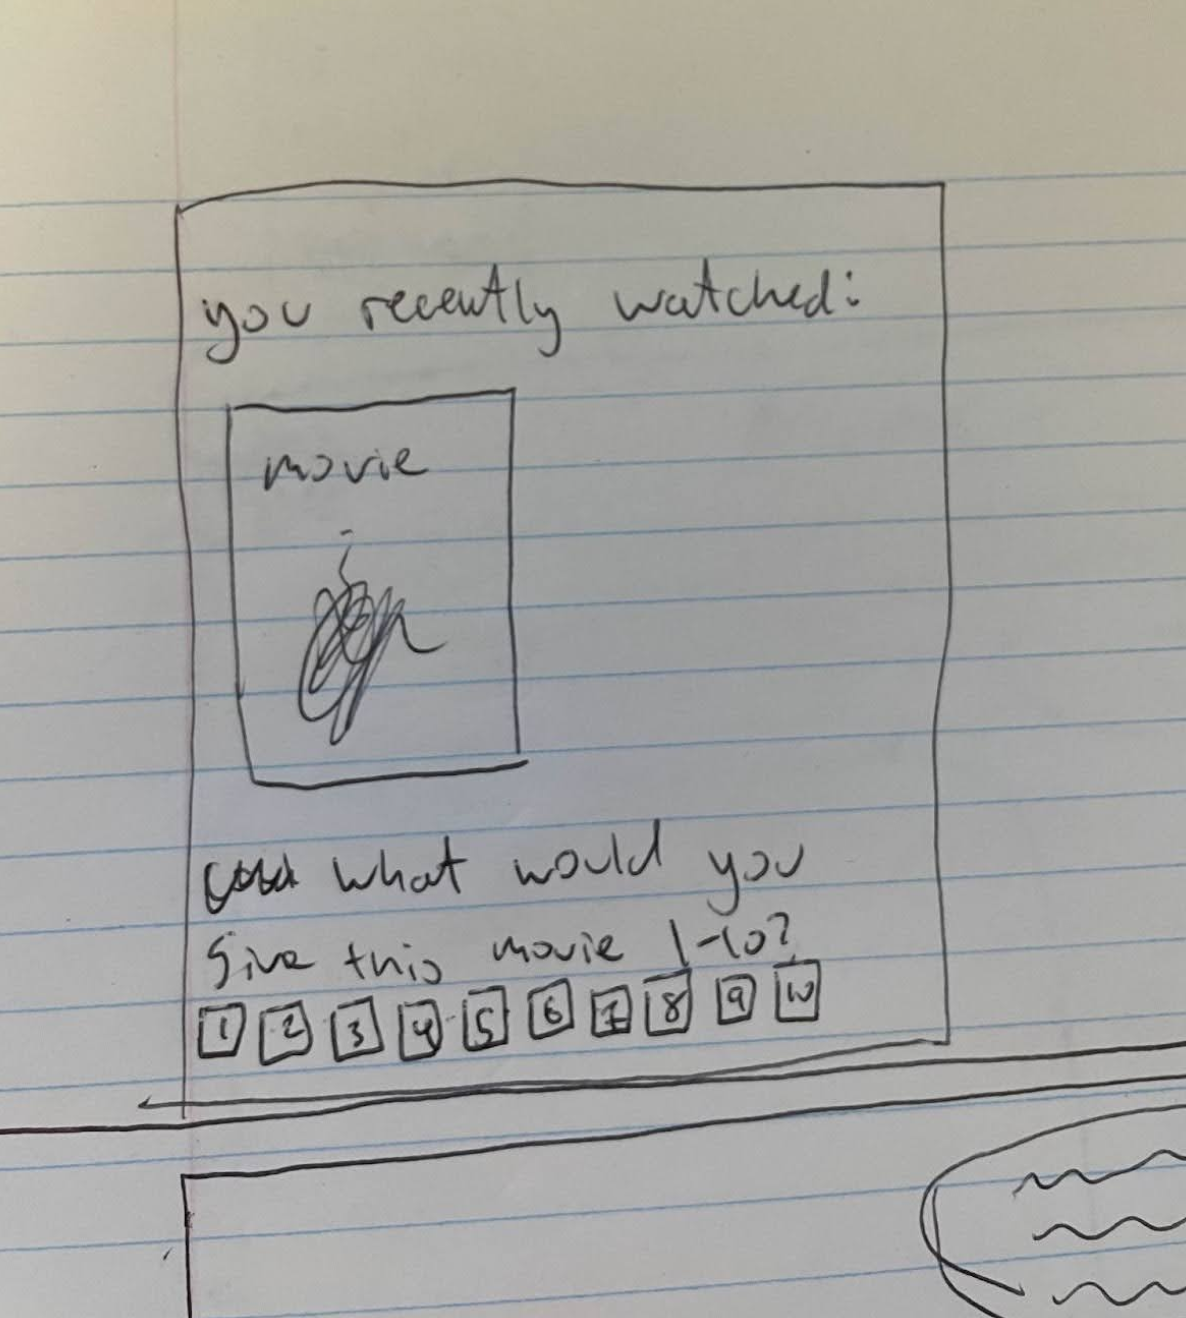 you recently watched:
movie
what would you
give this movie 1-10?
1 2 3 4 5 6 7 8 9 10